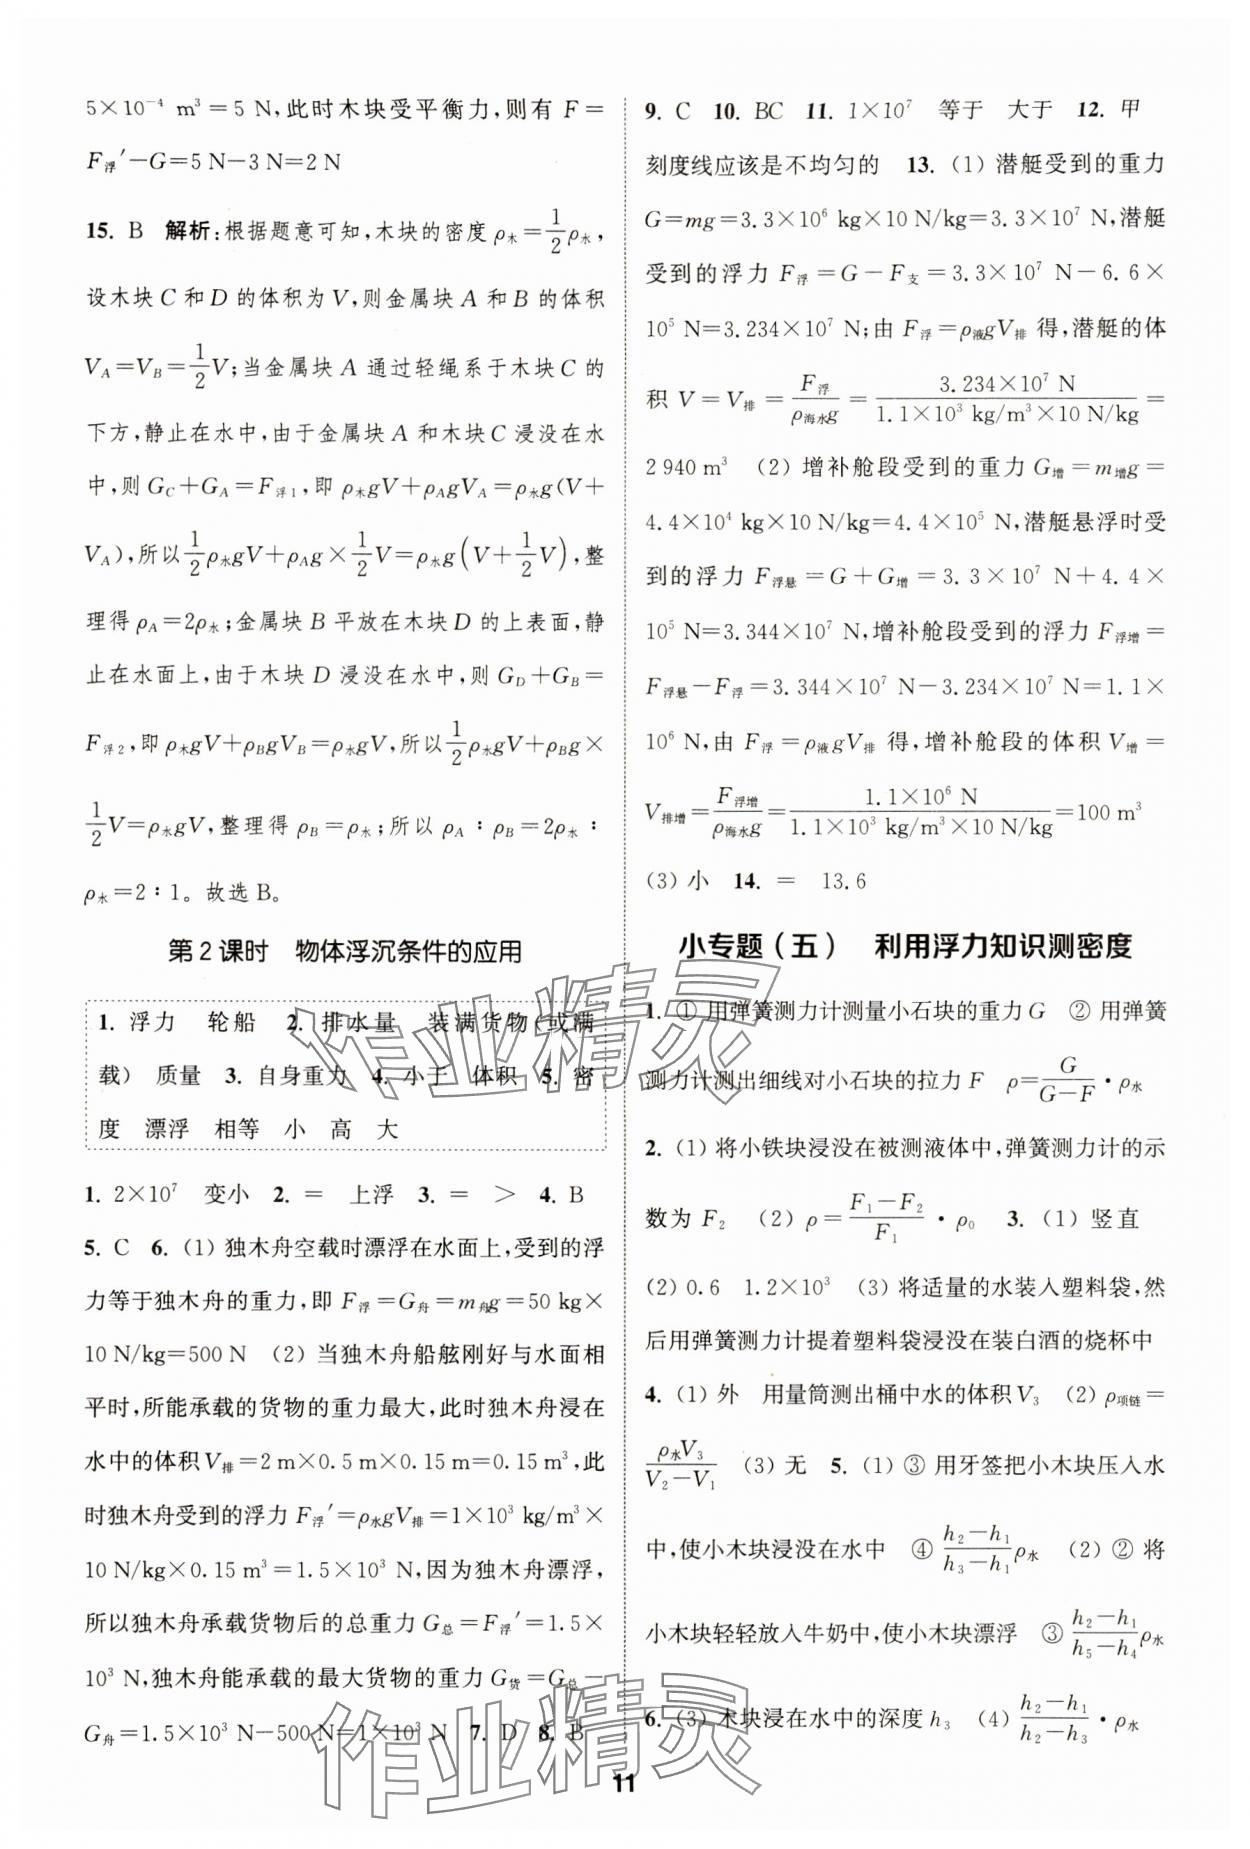 5×10⁻⁴ m³=5 N,此时木块受平衡力,则有 F=
F浮′-G=5 N-3 N=2 N
15. B 解析:根据题意可知,木块的密度 ρ木=1/2ρ水,
设木块 C 和 D 的体积为 V,则金属块 A 和 B 的体积
V_A=V_B=1/2V;当金属块 A 通过轻绳系于木块 C 的
下方,静止在水中,由于金属块 A 和木块 C 浸没在水
中,则 G_C+G_A=F浮1,即 ρ木gV+ρ_AgV_A=ρ水g(V+
V_A),所以1/2ρ水gV+ρ_Ag×1/2V=ρ水g(V+1/2V),整
理得 ρ_A=2ρ水;金属块 B 平放在木块 D 的上表面,静
止在水面上,由于木块 D 浸没在水中,则 G_D+G_B=
F浮2,即 ρ木gV+ρ_BgV_B=ρ水gV,所以1/2ρ水gV+ρ_Bg×
1/2V=ρ水gV,整理得 ρ_B=ρ水;所以 ρ_A∶ρ_B=2ρ水∶
ρ水=2∶1。故选 B。
第 2 课时 物体浮沉条件的应用
1. 浮力 轮船 2. 排水量 装满货物(或满
载) 质量 3. 自身重力 4. 小于 体积 5. 密
度 漂浮 相等 小 高 大
1. 2×10⁷ 变小 2. = 上浮 3. = > 4. B
5. C 6. (1) 独木舟空载时漂浮在水面上,受到的浮
力等于独木舟的重力,即 F浮=G舟=m舟g=50 kg×
10 N/kg=500 N (2) 当独木舟船舷刚好与水面相
平时,所能承载的货物的重力最大,此时独木舟浸在
水中的体积 V排=2 m×0.5 m×0.15 m=0.15 m³,此
时独木舟受到的浮力 F浮′=ρ水gV排=1×10³ kg/m³×
10 N/kg×0.15 m³=1.5×10³ N,因为独木舟漂浮,
所以独木舟承载货物后的总重力 G总=F浮′=1.5×
10³ N,独木舟能承载的最大货物的重力 G货=G总-
G舟=1.5×10³ N-500 N=1×10³ N 7. D 8. B
9. C 10. BC 11. 1×10⁷ 等于 大于 12. 甲
刻度线应该是不均匀的 13. (1) 潜艇受到的重力
G=mg=3.3×10⁶ kg×10 N/kg=3.3×10⁷ N,潜艇
受到的浮力 F浮=G-F支=3.3×10⁷ N-6.6×
10⁵ N=3.234×10⁷ N;由 F浮=ρ液gV排 得,潜艇的体
积 V=V排=F浮/ρ海水g=3.234×10⁷ N/1.1×10³ kg/m³×10 N/kg=
2 940 m³ (2) 增补舱段受到的重力 G增=m增g=
4.4×10⁴ kg×10 N/kg=4.4×10⁵ N,潜艇悬浮时受
到的浮力 F浮悬=G+G增=3.3×10⁷ N+4.4×
10⁵ N=3.344×10⁷ N,增补舱段受到的浮力 F浮增=
F浮悬-F浮=3.344×10⁷ N-3.234×10⁷ N=1.1×
10⁶ N,由 F浮=ρ液gV排 得,增补舱段的体积 V增=
V排增=F浮增/ρ海水g=1.1×10⁶ N/1.1×10³ kg/m³×10 N/kg=100 m³
(3) 小 14. = 13.6
小专题(五) 利用浮力知识测密度
1. ① 用弹簧测力计测量小石块的重力 G ② 用弹簧
测力计测出细线对小石块的拉力 F ρ=G/(G-F)·ρ水
2. (1) 将小铁块浸没在被测液体中,弹簧测力计的示
数为 F₂ (2) ρ=(F₁-F₂)/F₁·ρ₀ 3. (1) 竖直
(2) 0.6 1.2×10³ (3) 将适量的水装入塑料袋,然
后用弹簧测力计提着塑料袋浸没在装白酒的烧杯中
4. (1) 外 用量筒测出桶中水的体积 V₃ (2) ρ项链=
ρ水V₃/(V₂-V₁) (3) 无 5. (1) ③ 用牙签把小木块压入水
中,使小木块浸没在水中 ④ (h₂-h₁)/(h₃-h₁)ρ水 (2) ② 将
小木块轻轻放入牛奶中,使小木块漂浮 ③ (h₂-h₁)/(h₅-h₄)ρ水
6. (3) 木块浸在水中的深度 h₃ (4) (h₂-h₁)/(h₂-h₃)·ρ水
11
作业精灵
作业精灵